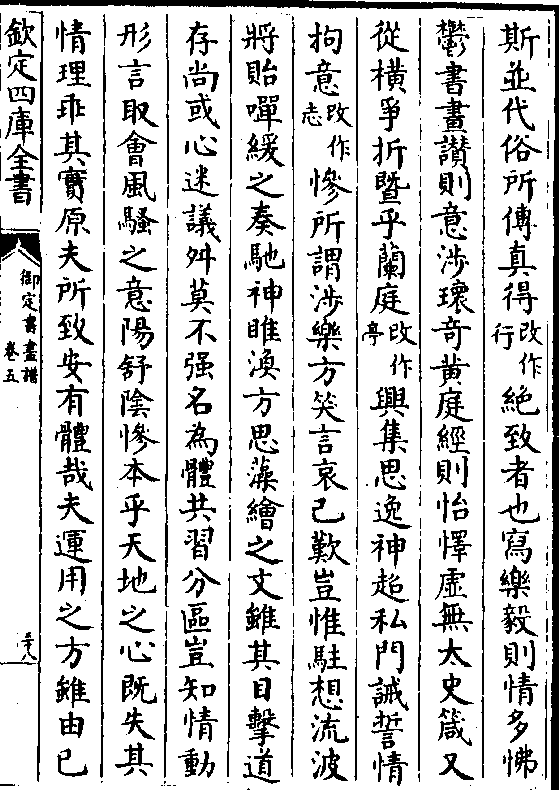 斯並代俗所傳真得改作行絶致者也寫樂毅則情多怫
鬱書畫讃則意涉瓌竒黄庭經則怡懌虚無太史箴又
從橫爭折暨乎蘭庭改作亭興集思逸神超私門誡誓情
拘意改作志慘所謂涉樂方笑言哀已歎豈惟駐想流波
將貽嘽緩之奏馳神睢渙方思藻繪之文雖其目擊道
存尚或心迷議舛莫不强名為體共習分區豈知情動
形言取會風騷之意陽舒陰慘本乎天地之心既失其
情理乖其實原夫所致安有體哉夫運用之方雖由已
欽定四庫全書
御定書畫譜
卷五
三十八